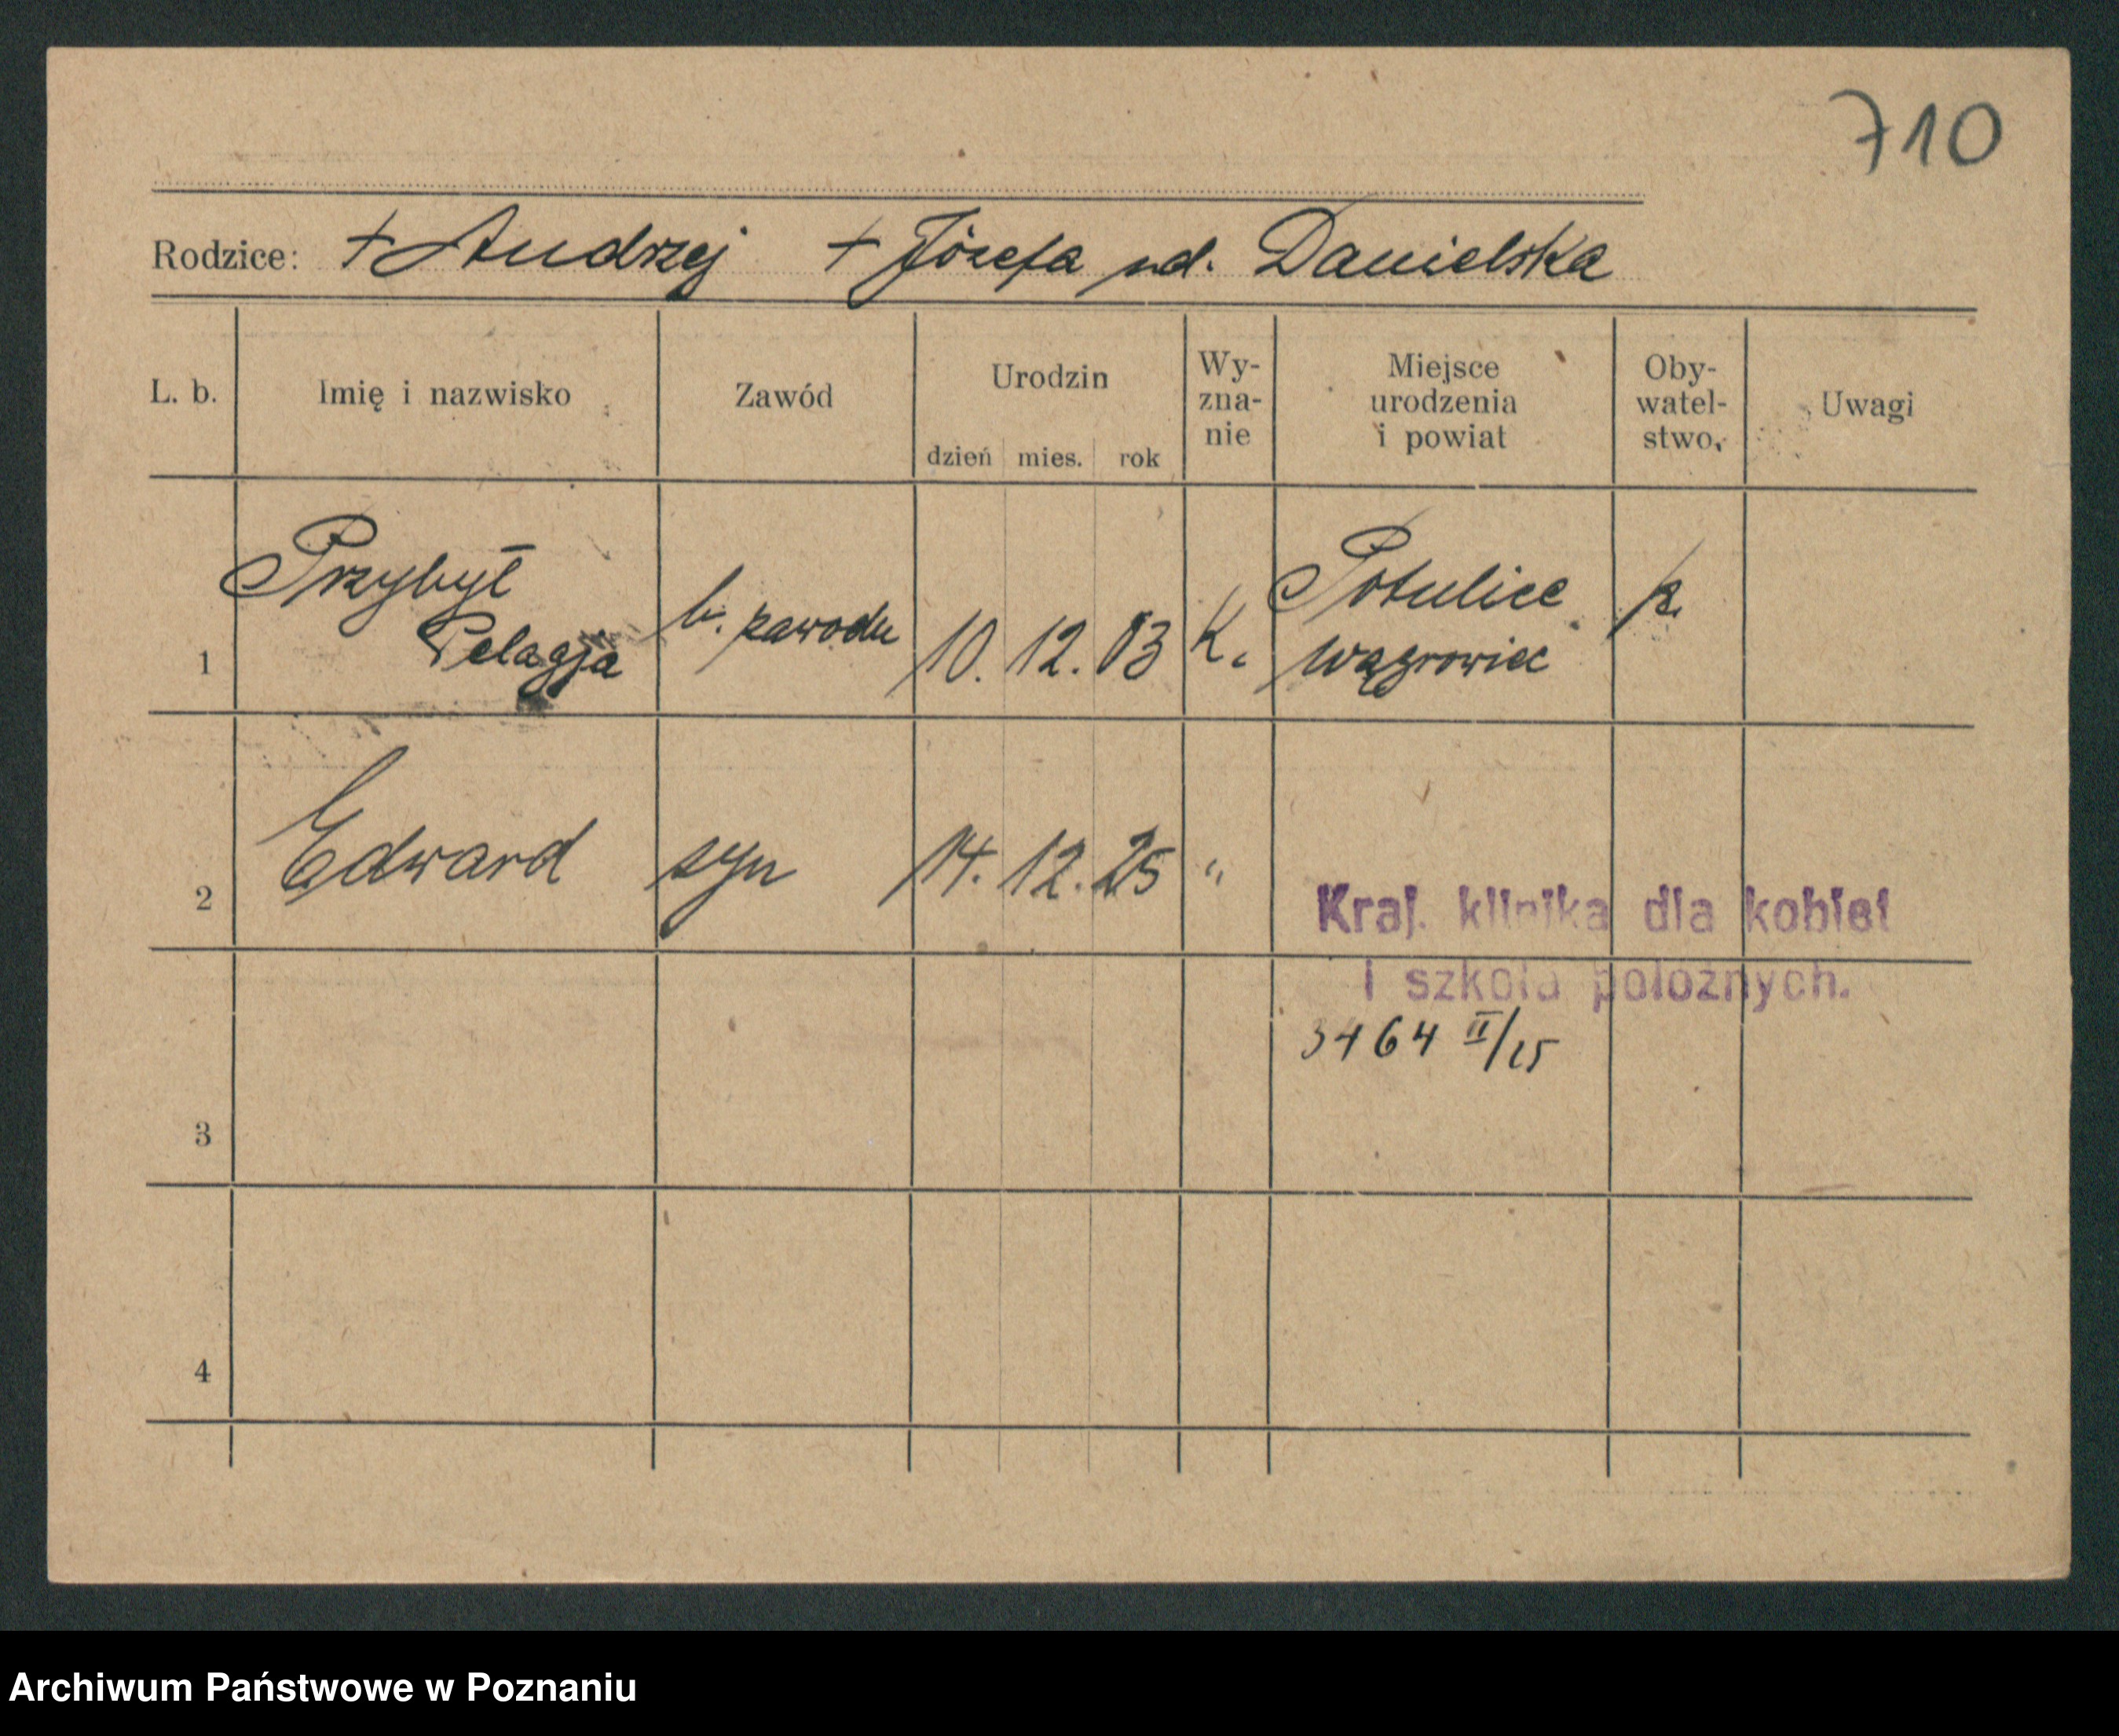 710
Rodzice: + Andrzej + Józefa ud. Danielska
L. b. Imię i nazwisko Zawód Urodzin dzień mies. rok Wy- zna- nie Miejsce urodzenia i powiat Oby- watel- stwo. Uwagi
Przybył
Pelagja
1 b. zawodu 10. 12. 03 K. Potulice
Wągrowiec p.
2 Edward syn 14. 12. 25 "
Kraj. klinika dla kobiet
i szkoła położnych.
3464 II/25
3
4
Archiwum Państwowe w Poznaniu